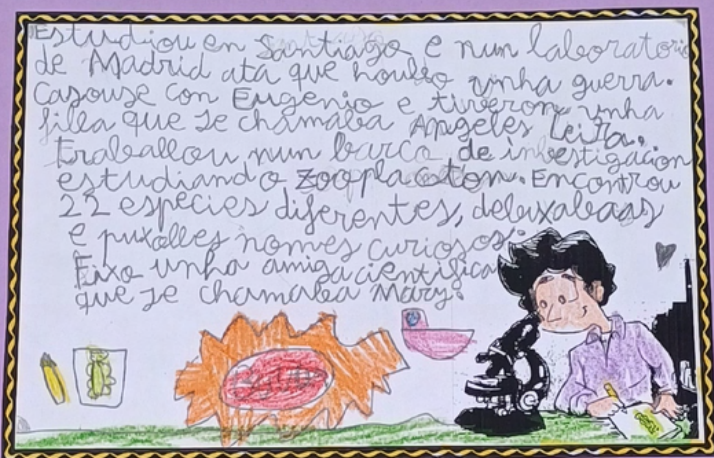 Estudiou en Santiago e nun laboratorio
de Madrid ata que houbo unha guerra.
Casouse con Eugenio e tiveron unha
filla que se chamaba Ángeles Leira.
Traballou nun barco de investigación
estudiando zooplancton. Encontrou
22 especies diferentes, debuxabaas
e puxolles nomes curiosos.
Fixo unha amiga científica
que se chamaba Mary.